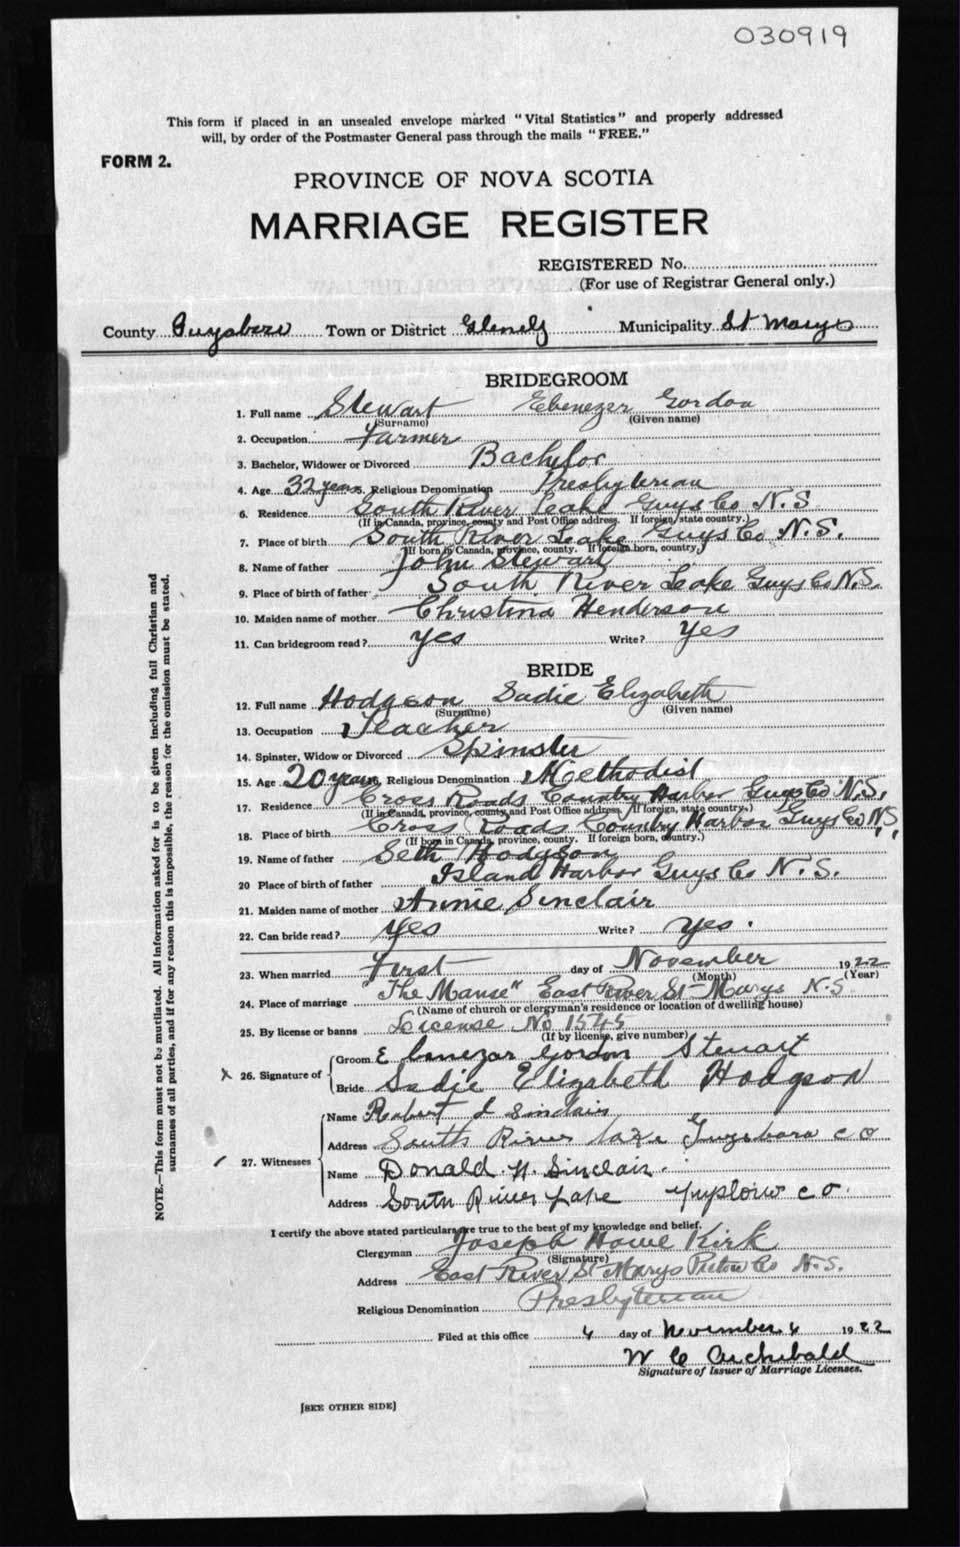 030919
This form if placed in an unsealed envelope marked "Vital Statistics" and properly addressed
will, by order of the Postmaster General pass through the mails "FREE."
FORM 2.
PROVINCE OF NOVA SCOTIA
MARRIAGE REGISTER
REGISTERED No.
(For use of Registrar General only.)
County Guysboro Town or District Glenelg Municipality St Marys
BRIDEGROOM
1. Full name Stewart Ebenezer Gordon
(Surname) (Given name)
2. Occupation Farmer
3. Bachelor, Widower or Divorced Bachelor
4. Age 32 years 5. Religious Denomination Presbyterian
6. Residence South River Leake Guys Co N.S.
(If in Canada, province, county and Post Office address. If foreign, state country.)
7. Place of birth South River Leake Guys Co N.S.
(If born in Canada, province, county. If foreign born, country.)
8. Name of father John Stewart
9. Place of birth of father South River Leake Guys Co N.S.
10. Maiden name of mother Christina Henderson
11. Can bridegroom read? yes Write? yes
BRIDE
12. Full name Hodgson Sadie Elizabeth
(Surname) (Given name)
13. Occupation Teacher
14. Spinster, Widow or Divorced Spinster
15. Age 20 years, Religious Denomination Methodist
17. Residence Cross Roads Country Harbor Guys Co N.S.
(If in Canada, province, county and Post Office address. If foreign, state country.)
18. Place of birth Cross Roads Country Harbor Guys Co N.S.
(If born in Canada, province, county. If foreign born, country.)
19. Name of father Seth Hodgson
20 Place of birth of father Island Harbor Guys Co N.S.
21. Maiden name of mother Annie Sinclair
22. Can bride read? yes Write? yes.
23. When married First day of November 1922
(Month) (Year)
24. Place of marriage "The Manse" East River St Marys N.S.
(Name of church or clergyman's residence or location of dwelling house)
25. By license or banns License No 1545
(If by license, give number)
x 26. Signature of Groom Ebenezar Gordon Stewart
Bride Sadie Elizabeth Hodgson
27. Witnesses Name Robert J Sinclair
Address South River Lake Guysboro Co
Name Donald N. Sinclair.
Address South River Lake Co.
I certify the above stated particulars are true to the best of my knowledge and belief.
Clergyman Joseph Howe Kirk
(Signature)
Address East River St Marys Pictou Co N.S.
Religious Denomination Presbyterian
Filed at this office 4 day of November 4 1922
W C Archibald
Signature of Issuer of Marriage Licenses.
[SEE OTHER SIDE]
NOTE.—This form must not be mutilated. All information asked for is to be given including full Christian and
surnames of all parties, and if for any reason this is impossible, the reason for the omission must be stated.